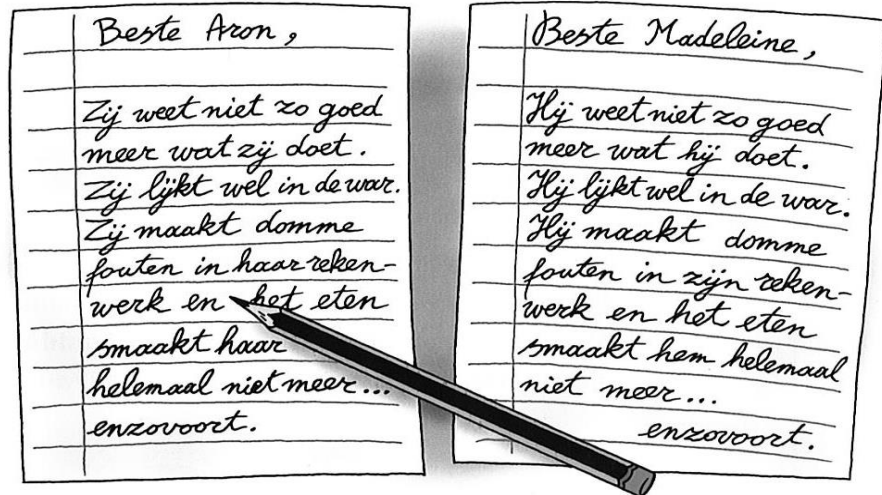 Beste Aron,
Zij weet niet zo goed
meer wat zij doet.
Zij lijkt wel in de war.
Zij maakt domme
fouten in haar reken-
werk en het eten
smaakt haar
helemaal niet meer...
enzovoort.
Beste Madeleine,
Hij weet niet zo goed
meer wat hij doet.
Hij lijkt wel in de war.
Hij maakt domme
fouten in zijn reken-
werk en het eten
smaakt hem helemaal
niet meer...
enzovoort.